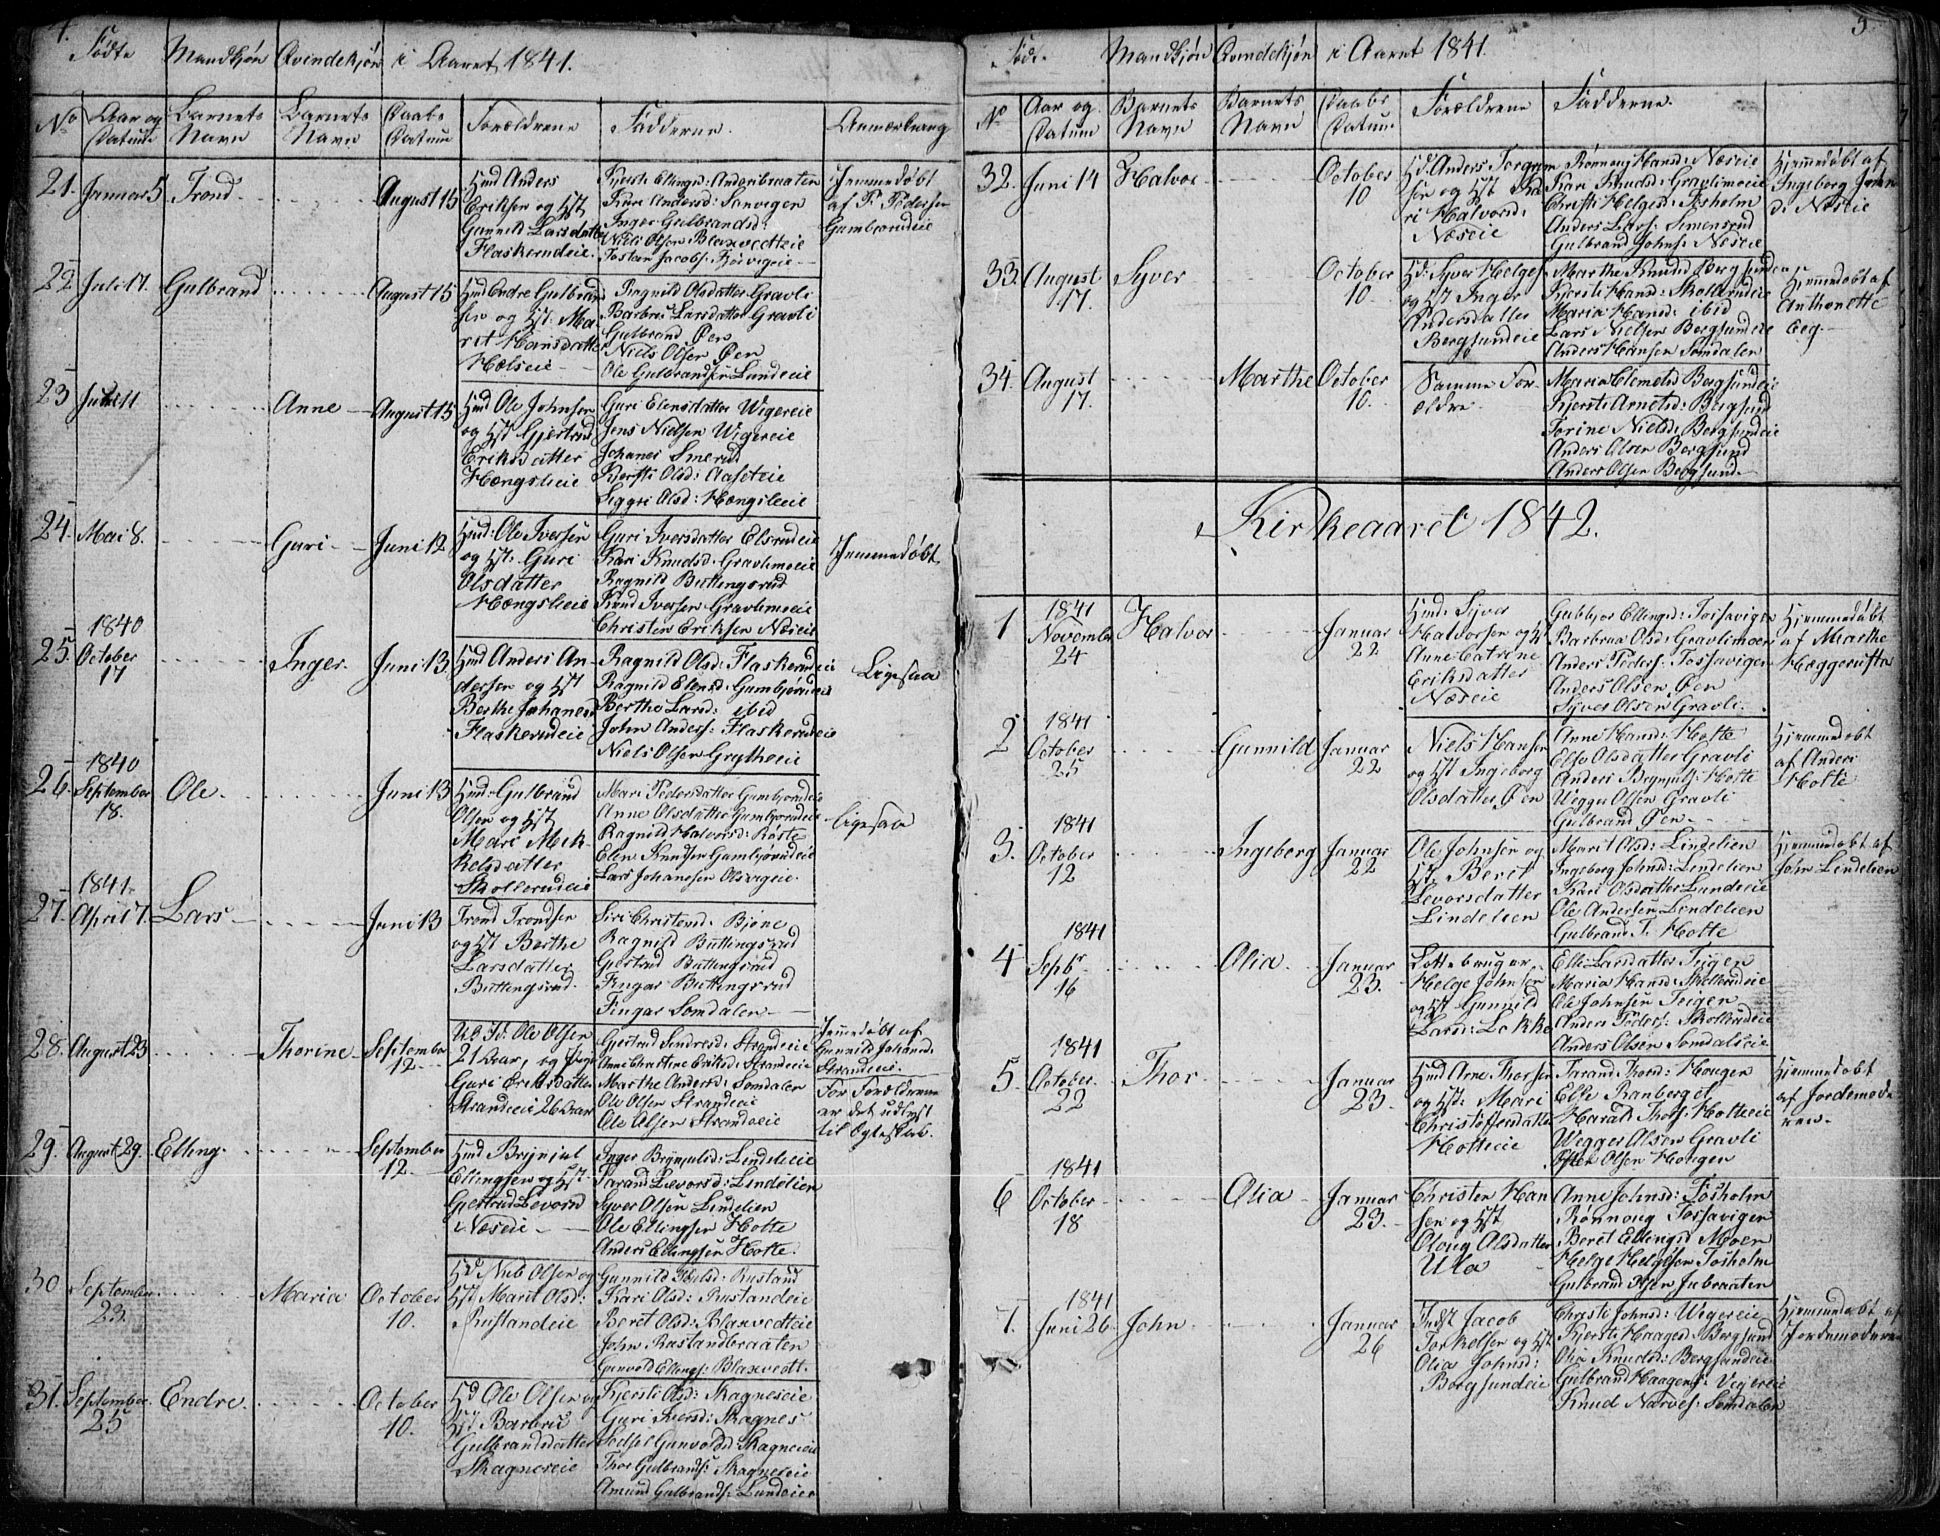 4.
Födte Mandkjøn Qvindekjøn i Aaret 1841.
No Aar og Datum Barnets Navn Barnets Navn Daabs Datum Forældrene Fadderne. Anmærkning
21. Januar 5 Trond August 15
Hmd Anders
Eriksen og Hst
Gunnild Larsdatter
Flaskerudeie
Kari Andersd: Sanvigen
Inger Gulbrandsd:
Niels Olsen Blaxvedteie
Hjemmedøbt
af P. Pedersen
Gumbjørudeie
22 Juli 17. Gulbrand August 15
Hmd Endre Gulbrand
sen og Hst: Ma-
rit Hansdatter
Ragnild Olsdatter Gravli
Barbra Larsdatter Gravli
Gulbrand Øen
Niels Olsen Øen
Ole Gulbrandsen Lundeie
23 11 Anne August 15
Hmd Ole Johnsen
og Hst Gjertrud
Eriksdatter
Hængsleeie
Guri Elensdatter Wigereie
Jens Nielsen Wigereie
Johanes Smerud
Kjersti Olsd: Aaseteie
Siggri Olsd: Hængsleeie
24. Mai 8. Guri Juni 12
Hmd: Ole Iversen
og Hst. Guri
Olsdatter
Hængsleeie
Guri Iversdatter Elsrudeie
Kari Knudsd: Gravlimoeie
Ragnild Buttingsrud
Knud Iversen Gravlimoeie
Christen Eriksen Næseie
Hjemmedøbt
25. 1840 October 17 Inger Juni 13
Hmd Anders An-
dersen og Hst
Berthe Johanesd
Flaskerudeie
Ragnild Olsd: Flaskerudeie
Ragnild Elensd: Gumbjørudeie
Berthe Larsd: ibid
John Anders: Flaskerudeie
Niels Olsen Grytheeie
Ligesaa
26. 1840 September 18. Ole Juni 13
Hmd: Gulbrand
Olsen og Hst
Mari Mek-
kelsdatter
Skollerudeie
Mari Pedersdatter Gumbjørudeie
Anne Olsdatter Gumbjørudeie
Ragnild Halvorsd: Røste
Elen Knudsen Gumbjørudeie
Lars Johanesen Olsvigeie
Ligesaa
27. 1841. April 7. Lars Juni 13
Trond Trondsen
og Hst Berthe
Larsdatter
Buttingsrud.
Siri Christensd: Bjøne
Ragnild Buttingsrud
Gjertrud Buttingsrud
Fingar Buttingsrud
Fingar Somdalen
28. August 23 Thorine September 12
Ole Olsen
21 Aar, og Pige
Guri Eriksdatter
Strandeeie 26 Aar
Gjertrud Sendresd: Strandeeie
Anne Christine Eriksd: Strandeeie
Marthe Andersd: Somdalen
Ole Olsen Strandeeie
Ole Olsen Strandeeie
Hjemmedøbt af
Gunnild Johansd:
Strandeeie.
For Forældrene
er det udlyst
til Egteskab.
29. August 29. Elling. September 12.
Hmd Brynjul
Ellingsen og Hst
Gjertrud Levorsd
Næseie
Inger Brynjulsd: Lindeleeie
Tarand Levorsd: Lindelien
Syver Olsen Lindelien
Ole Ellingsen Hotte
Anders Ellingsen Hotte.
30 September 23. Maria October 10.
Hd Nub Olsen og
Hst. Marit Olsd:
Rustandeie
Gunnild Poulsd: Rustand
Kari Olsd: Rustandeie
Beret Olsd: Blaxvedteie
John Rustandbraaten
Gunvold Ellings: Blaxvedt.
31. September 25 Endre October 10.
Hd Ole Olsen og
Hst Barbra
Gulbrandsdatter
Skagneseie
Kjersti Olsd: Skagneseie
Guri Iversd: Skagnes
Sedsel Gunvoldsd Skagneseie
Thor Gulbrands: Skagneseie
Amund Gulbrands: Lundeeie
5.
Födt. Mandkjøn Qvindekjøn i Aaret 1841.
No Aar og Datum Barnets Navn Barnets Navn Daabs Datum Forældrene Fadderne.
32. Juni 14 Halvor October 10
Hd: Anders Torgrim
sen og Hst Ka
ri Halvorsd:
Næseie
Rønnoug Hansd: Næseie
Kari Knudsd: Gravlimoeie
Christi Helgesd: Fosholm
Anders Lars: Simensrud
Gulbrand Johns: Næseie
Hjemmedøbt af
Ingeborg Johns
d: Næseie
33. August 17. Syver October 10.
Hd: Syver Helges
og Hst Inger
Andersdatter
Bergsundeie
Marthe Knudsd Bergsunden
Kjersti Hansd: Skollerudeie
Maria Hansd: ibid
Lars Nielsen Bergsundeie
Anders Hansen Somdalen
Hjemmedøbt af
Anthonette
Eeg.
34. August 17. Marthe October 10.
Samme For-
ældre
Maria Clemetsd Bergsundeie
Kjersti Arnetsd: Bergsund
Torine Nielsd: Bergsundeie
Anders Olsen Bergsund
Anders Olsen Bergsund.
Kirkeaaret 1842.
1 1841 November 24 Halvor Januar 22
Hmd: Syver
Halvorsen og Hst
Anne Catrine
Eriksdatter
Næseie
Gubbjør Ellingsd: Fossavigen
Barbraa Olsd: Gravlimoen
Anders Peders: Fossavigen
Anders Olsen Øen
Syver Olsen Gravli.
Hjemmedøbt
af Marthe
Hæggerusta
2 1841 October 25 Gunnild Januar 22
Niels Hansen
og Hst Ingeborg
Olsdatter Øen
Anne Hansd: Hotte
Else Olsdatter Gravli
Anders Brynjuls: Hotte
Wegger Olsen Gravli
Gulbrand Øen
Hjemmedøbt
af Anders
Hotte
3. 1841 October 12 Ingeborg Januar 22
Ole Johnsen og
Hst Berit
Levorsdatter
Lindelien
Marit Olsd: Lindelien
Ingeborg Johnsd: Lindelien
Kari Olsdatter Lundeeie
Ole Andersen Lindelien
Gulbrand T. Hotte
Hjemmedøbt af
John Lindelien
4 1841 Sepbr 16 Olia Januar 23.
Lottebruger
Helge Johnsen
og Hst Gunnild
Larsd: Løkke
Elli Larsdatter Teigen
Maria Hansd: Skollerudeie
Ole Johnsen Teigen
Anders Peders: Skollerudeie
Anders Olsen Somdaleie
5. 1841 October 22 Thor Januar 23.
Hmd Arne Thorsen
og Hst: Mari
Christoffersdatter
Hotteeie
Tarand Thorsd: Hougen
Elli Ranberget
Harald Thors: Hotteeie
Wegger Olsen Gravli
Olsen Hougen
Hjemmedøbt
af Jordemode-
ren.
6 1841 October 18 Olia Januar 23.
Christen Han
sen og Hst
Oloug Olsdatter
Ula
Anne Johnsd: Fosholm
Rønnoug Fossavigen
Beret Ellingsd Moen
Helge Helgesen Fosholm
Gulbrand Olsen
7. 1841 Juni 26 John Januar 26
Indst Jacob
Torkelsen og Hst
Olia Johnsd:
Bergsundeie
Christi Johnsd: Wigereie
Kjersti Haagensd: Bergsund
Olia Knudsd: Bergsundeie
Gulbrand Haagens: Vegereie
Knud Narves: Somdalen
Hjemmedøbt af
Jordemoderen